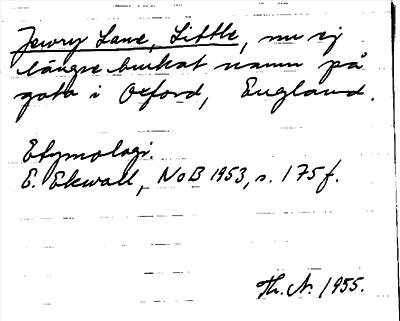 Jewry Lane, Little, nu ej
längre brukat namn på
gata i Oxford, England.
Etymologi.
E. Ekwall, NoB 1953, s. 175 f.
Th. N. 1955.